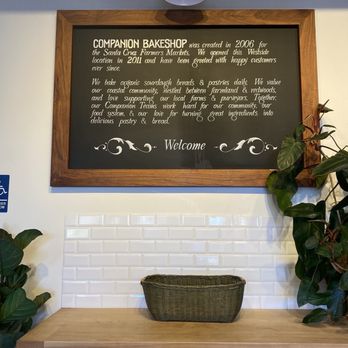 COMPANION BAKESHOP was created in 2006 for
the Santa Cruz Farmers Markets. We opened this Westside
location in 2011 and have been greeted with happy customers
ever since.
We make organic sourdough breads & pastries daily. We value
our coastal community, nestled between farmland & redwoods,
and love supporting our local farms & purveyors. Together,
our Companion Teams work hard for our community, our
food system, & our love for turning great ingredients into
delicious pastry & bread.
Welcome